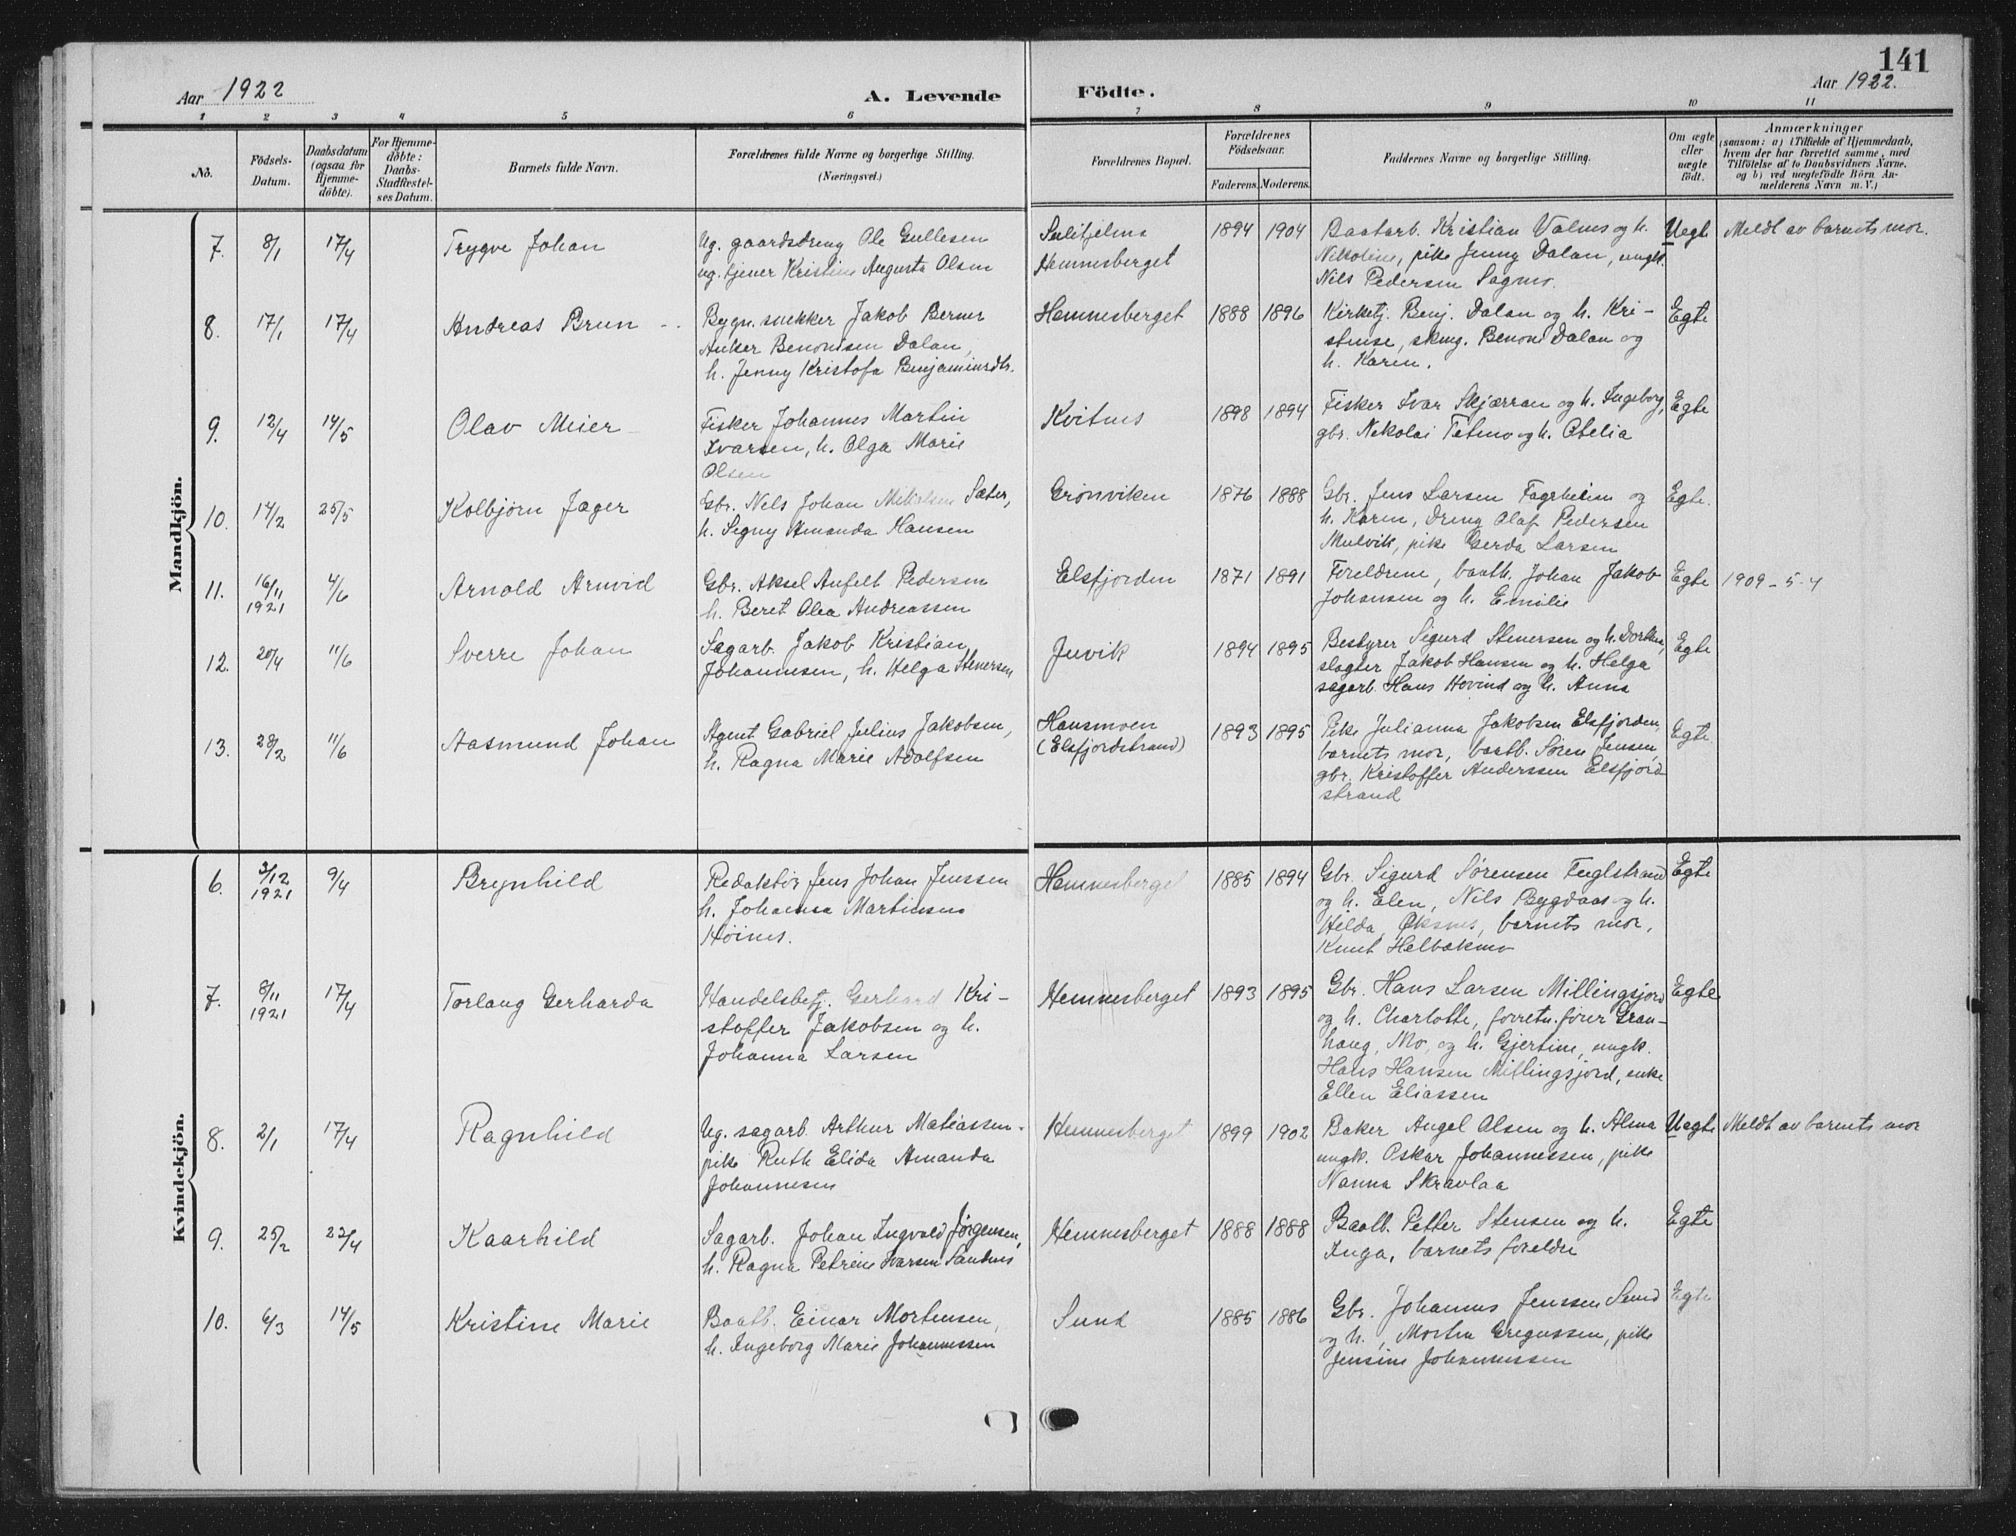 141
Aar 1922
A. Levende
Födte.
Aar 1922.
1 2 3 4 5 6 7 8 9 10 11
No.
Födsels-Datum.
Daabsdatum (ogsaa for Hjemme-döbte).
For Hjemme-döbte: Daabs-Stadfæstel-ses Datum.
Barnets fulde Navn.
Forældrenes fulde Navne og borgerlige Stilling. (Næringsvei.)
Forældrenes Bopæl.
Forældrenes Födselsaar.
Faderens. Moderens.
Faddernes Navne og borgerlige Stilling.
Om ægte eller uægte födt.
Anmærkninger
(saasom: a) i Tilfælde af Hjemmedaab,
hvem der har forrettet samme, med
Tilföielse af to Daabsvidners Navne,
og b) ved uægtefödte Börn An-
melderens Navn m. V.)
Mandkjön.
7. 8/1 17/4 Trygve Johan
Ug. gaardsdreng Ole Gullesen
ug. tjener Kristine Augusta Olsen
Sulitjelma
Hemnesberget
1894 1904
Baatarb. Kristian Valnes og h.
Nikoline, pike Jenny Dalan, ungk.
Nils Pedersen Sagmo.
Uegte Meldt av barnets mor.
8. 17/1 17/4 Andreas Brun
Bygn. snekker Jakob Berner
Anker Benonisen Dalan,
h. Jenny Kristofa Benjaminsdtr.
Hemnesberget 1888 1896
Kirketj. Benj. Dalan og h. Kri-
stense, skmg. Benoni Dalan og
h. Karen.
Egte
9. 12/4 14/5 Olav Meier
Fisker Johannes Martin
Ivarsen, h. Olga Marie
Olsen
Kvitnes 1898 1894
Fisker Ivar Skjærran og h. Ingeborg,
gbr. Nikolai Tetmo og h. Otelia
Egte
10. 14/2 25/5 Kolbjørn Jæger
Gbr. Nels Johan Mikalsen Sæter,
h. Signy Amanda Hansen
Grønviken 1876 1888
Gbr. Jens Larsen Fagerheim og
h. Karen, dreng Olaf Pedersen
Mulvik, pike Gerda Larsen
Egte.
11. 16/11 1921 4/6 Arnold Arnvid
Gbr. Aksel Anfelt Pedersen
h. Beret Olea Andreassen
Elsfjorden 1871 1891
Foreldrene, baatb. Johan Jakob
Johansen og h. Emilie
Egte 1909-5-4
12. 20/4 11/6 Sverre Johan
Sagarb. Jakob Kristian
Johannesen, h. Helga Stenersen
Juvik 1894 1895
Bestyrer Sigurd Stenersen og h. Dorthea,
slagter Jakob Hansen og h. Helga
sagarb. Hans Hovind og h. Anna
Egte
13. 28/2 11/6 Aasmund Johan
Agent Gabriel Julius Jakobsen,
h. Ragna Marie Adolfsen
Hansmoen
(Elsfjordstrand)
1893 1895
Pike Julianna Jakobsen Elsfjorden,
barnets mor, baatb. Søren Jensen,
gbr. Kristoffer Anderssen Elsfjord
strand
Egte
Kvindekjön.
6. 3/12 1921 9/4 Brynhild
Redaktör Jens Johan Jenssen
h. Johanna Martinsen
Høines.
Hemnesberget 1885 1894
Gbr. Sigurd Sørensen Fuglstrand
og h. Elen, Nils Bygdaas og h.
Hilda, Øksnes, barnets mor,
Knut Helbakmo
Egte
7. 8/11 1921 17/4 Torlaug Gerharda
Handelsbetj. Gerhard Kri-
stoffer Jakobsen og h.
Johanna Larsen
Hemnesberget 1893 1895
Gbr. Hans Larsen Millingsjord
og h. Charlotte, forretn. fører Gran-
haug, Mo, og h. Gjertine, ungk.
Hans Hansen Millingsjord, enke
Ellen Eliassen
Egte
8. 2/1 17/4 Ragnhild
Ug. sagarb. Arthur Matiassen
pike Ruth Elida Amanda
Johannesen
Hemnesberget 1899 1902
Baker Angel Olsen og h. Alma
ungk. Oskar Johannessen, pike
Nanna Skravlaa
Uegte Meldt av barnets mor
9. 25/2 22/4 Kaarhild
Sagarb. Johan Ingvald Jørgensen,
h. Ragna Petrine Ivarsen Sandnes
Hemnesberget 1888 1888
Baatb. Petter Stensen og h.
Inga, barnets foreldre
Egte
10. 6/3 14/5 Kristine Marie
Baatb. Einar Mortensen,
h. Ingeborg Marie Johannessen
Sund 1885 1886
Gbr. Johannes Jenssen Sund
og h., Morten Gregussen, pike
Jensine Johannessen
Egte